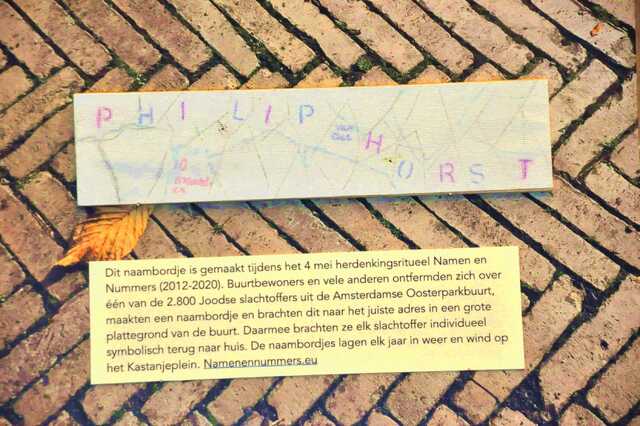 PHILIP
van der
HORST
10
Dit naambordje is gemaakt tijdens het 4 mei herdenkingsritueel Namen en
Nummers (2012-2020). Buurtbewoners en vele anderen ontfermden zich over
één van de 2.800 Joodse slachtoffers uit de Amsterdamse Oosterparkbuurt,
maakten een naambordje en brachten dit naar het juiste adres in een grote
plattegrond van de buurt. Daarmee brachten ze elk slachtoffer individueel
symbolisch terug naar huis. De naambordjes lagen elk jaar in weer en wind op
het Kastanjeplein. Namenennummers.eu